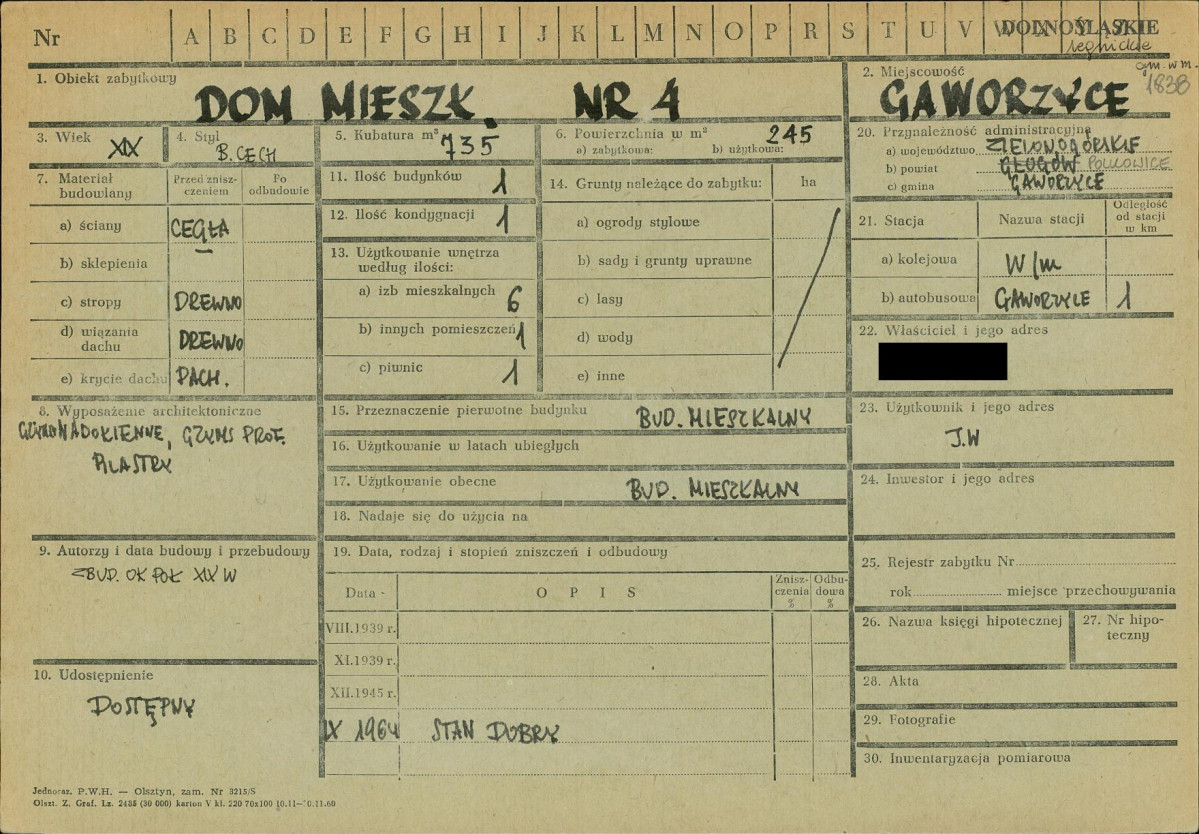 Nr A B C D E F G H I J K L M N O P R S T U V W DOLNOŚLĄSKIE
legnickie
gm. w m.
1838
1. Obiekt zabytkowy
DOM MIESZK. NR 4
2. Miejscowość
GAWORZYCE
3. Wiek
XIX
4. Styl
B. CECH
5. Kubatura m³
735
6. Powierzchnia w m²
a) zabytkowa: b) użytkowa:
245
7. Materiał budowlany
Przed zniszczeniem
Po odbudowie
a) ściany CEGŁA
b) sklepienia
c) stropy DREWNO
d) wiązania dachu DREWNO
e) krycie dachu DACH.
8. Wyposażenie architektoniczne
NADOKIENNE, GZYMS PROF.
PILASTRY
9. Autorzy i data budowy i przebudowy
ZBUD. OK POŁ XIX W
10. Udostępnienie
DOSTĘPNY
11. Ilość budynków 1
12. Ilość kondygnacji 1
13. Użytkowanie wnętrza według ilości:
a) izb mieszkalnych 6
b) innych pomieszczeń 1
c) piwnic 1
14. Grunty należące do zabytku: ha
a) ogrody stylowe
b) sady i grunty uprawne
c) lasy
d) wody
e) inne
15. Przeznaczenie pierwotne budynku BUD. MIESZKALNY
16. Użytkowanie w latach ubiegłych
17. Użytkowanie obecne BUD. MIESZKALNY
18. Nadaje się do użycia na
19. Data, rodzaj i stopień zniszczeń i odbudowy
Data - OPIS Zniszczenia % Odbudowa %
VIII.1939 r.
XI.1939 r.
XII.1945 r.
IX 1964 STAN DOBRY
20. Przynależność administracyjna
a) województwo ZIELONOGÓRSKIE
b) powiat GŁOGÓW POLKOWICE
c) gmina GAWORZYCE
21. Stacja Nazwa stacji Odległość od stacji w km
a) kolejowa W/m
b) autobusowa GAWORZYCE 1
22. Właściciel i jego adres
23. Użytkownik i jego adres
J.W
24. Inwestor i jego adres
25. Rejestr zabytku Nr
rok miejsce przechowywania
26. Nazwa księgi hipotecznej
27. Nr hipoteczny
28. Akta
29. Fotografie
30. Inwentaryzacja pomiarowa
Jednoraz. P.W.H. — Olsztyn, zam. Nr 3215/S
Olszt. Z. Graf. Lz. 2488 (30 000) karton V kl. 220 70x100